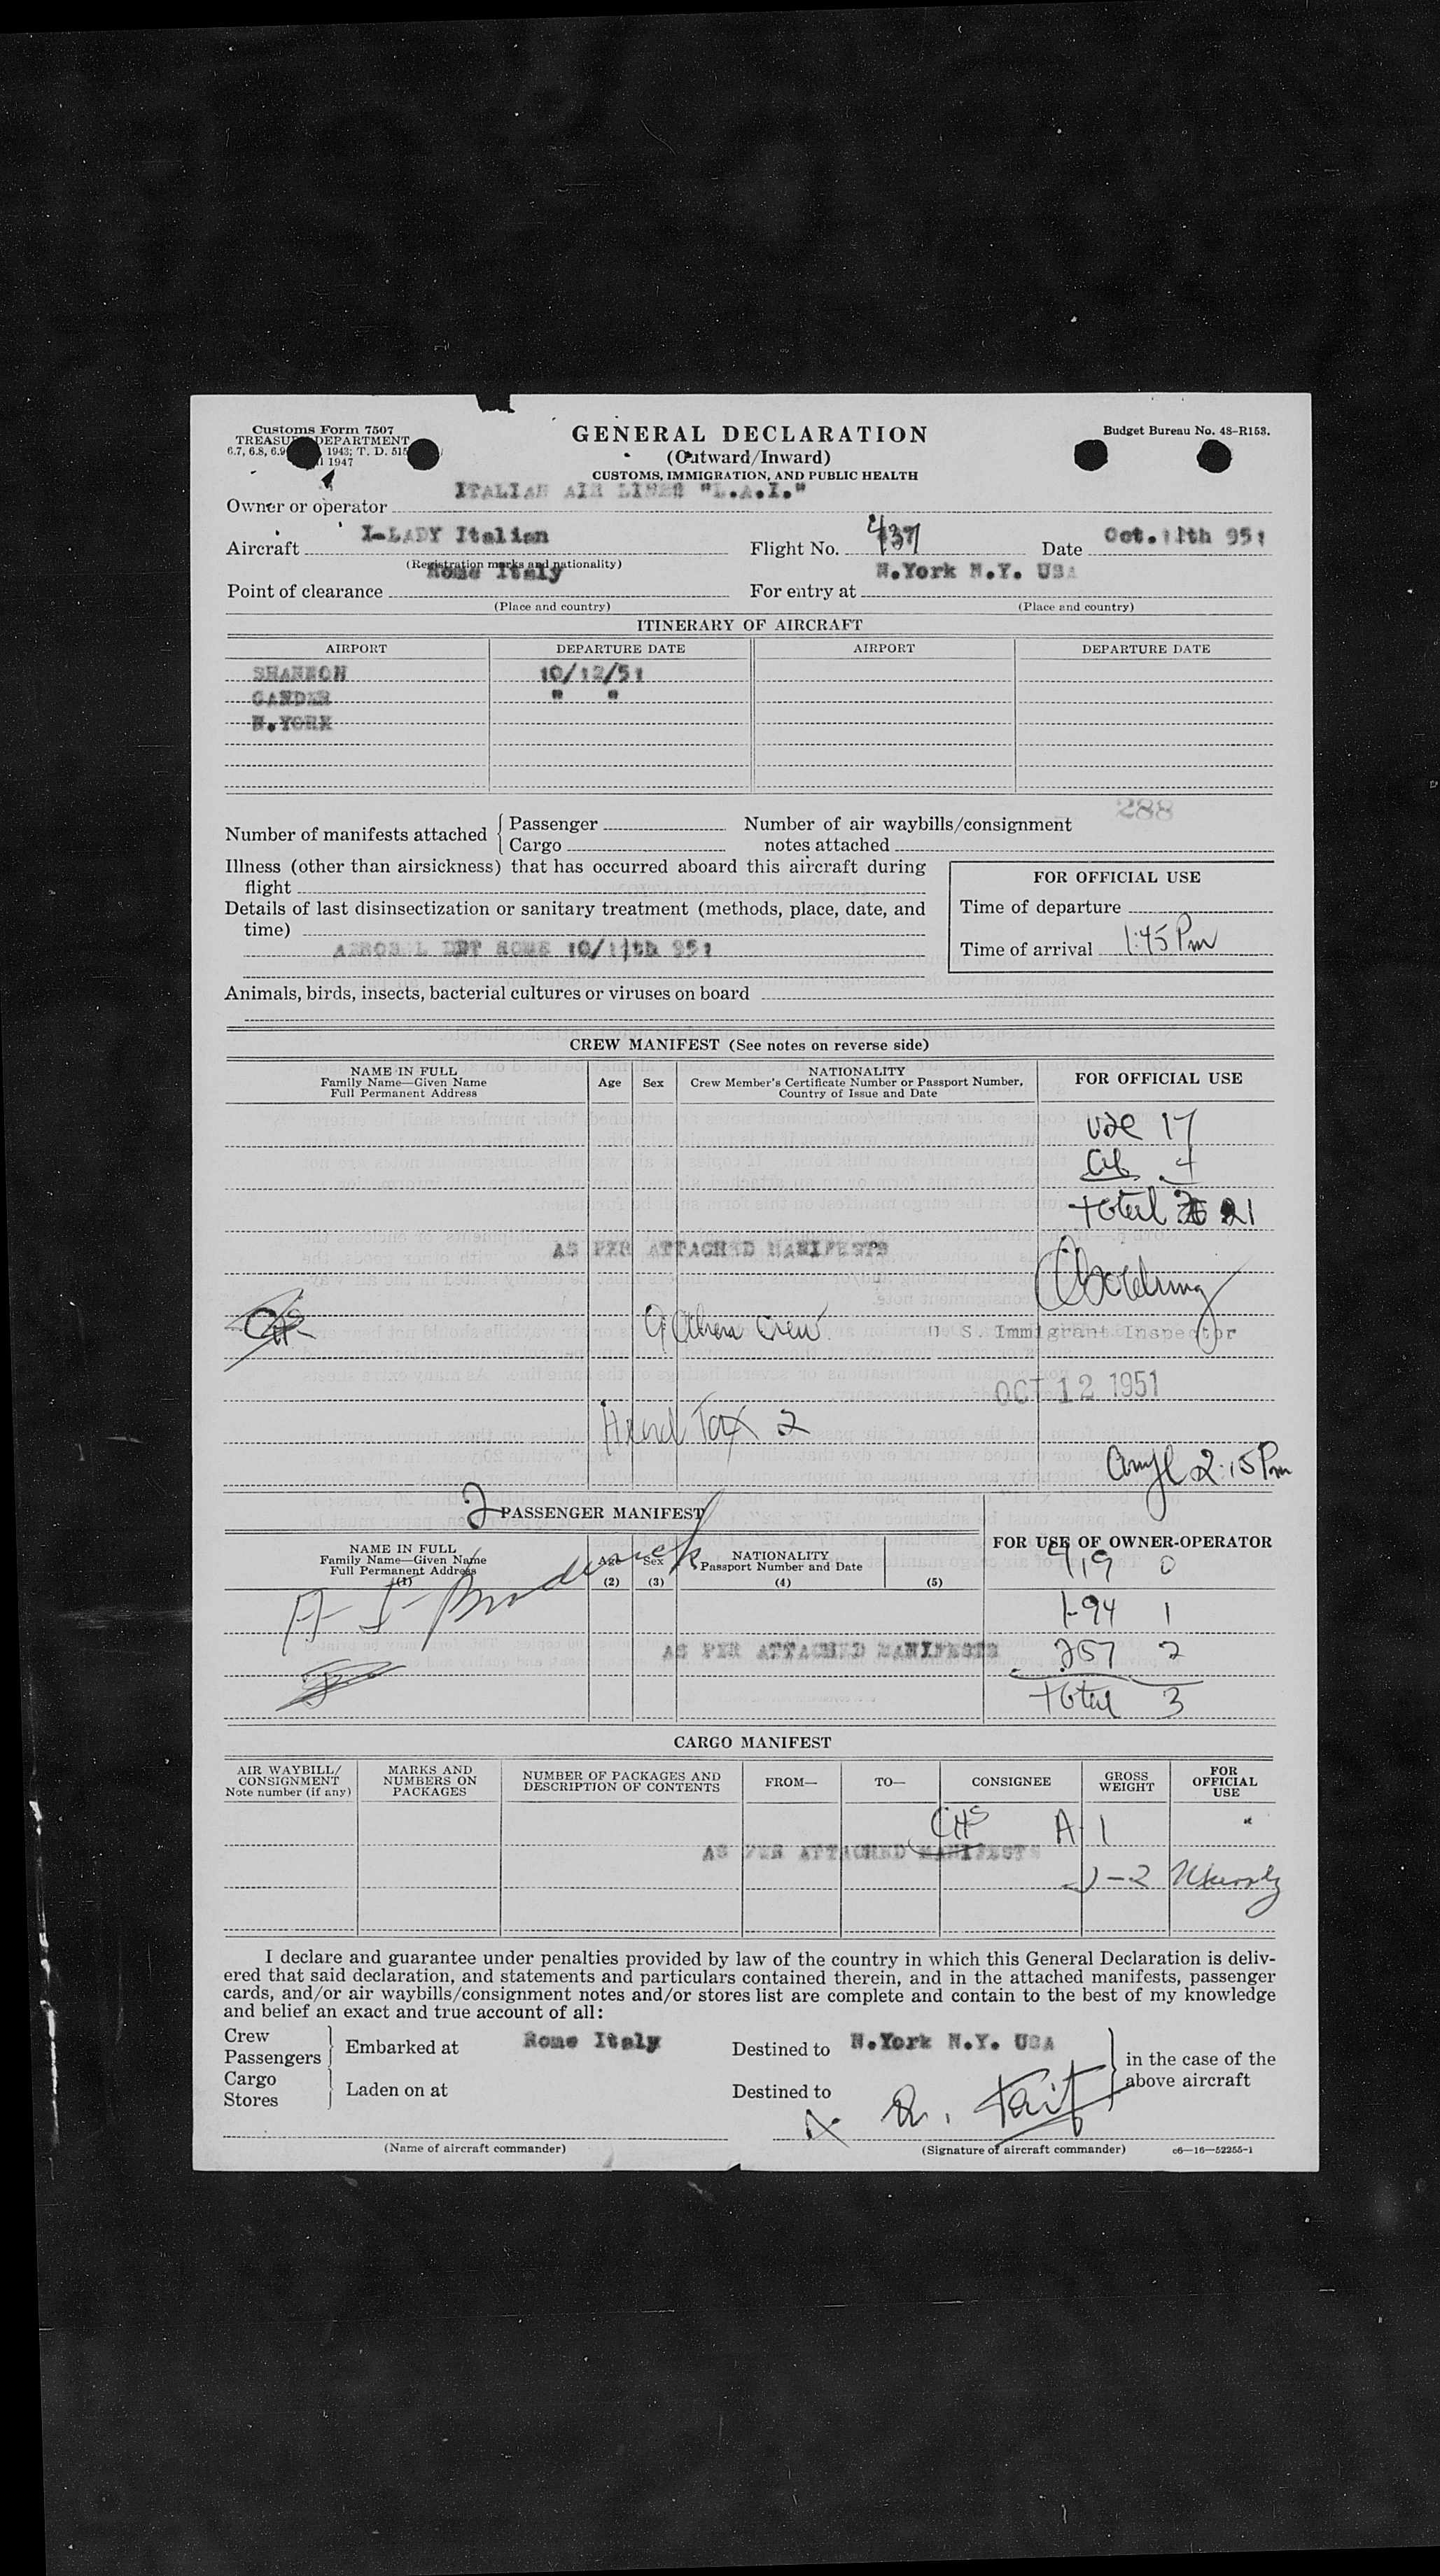 Customs Form 7507
TREASURY DEPARTMENT
1943; T. D. 515
1947
GENERAL DECLARATION
(Outward/Inward)
CUSTOMS, IMMIGRATION, AND PUBLIC HEALTH
Budget Bureau No. 48-R153.
Owner or operator ITALIAN AIR LINES "L.A.I."
Aircraft I-LADY Italian
Flight No. 437
Date Oct. 11th 951
(Registration marks and nationality)
Point of clearance Rome Italy
For entry at N.York N.Y. USA
(Place and country)
(Place and country)
ITINERARY OF AIRCRAFT
AIRPORT DEPARTURE DATE AIRPORT DEPARTURE DATE
SHANNON 10/12/51
GANDER " "
N.YORK
288
Number of manifests attached { Passenger
Cargo
Number of air waybills/consignment
notes attached
Illness (other than airsickness) that has occurred aboard this aircraft during
flight
Details of last disinsectization or sanitary treatment (methods, place, date, and
time)
AEROSOL DDT ROME 10/11th 951
FOR OFFICIAL USE
Time of departure
Time of arrival 1:45 Pm
Animals, birds, insects, bacterial cultures or viruses on board
CREW MANIFEST (See notes on reverse side)
NAME IN FULL
Family Name—Given Name
Full Permanent Address
Age
Sex
NATIONALITY
Crew Member's Certificate Number or Passport Number,
Country of Issue and Date
FOR OFFICIAL USE
17
4
total 21
AS PER ATTACHED MANIFESTS
9 Alien Crew
U S. Immigrant Inspector
OCT 12 1951
Head Tax 2
2:15 Pm
2
PASSENGER MANIFEST
NAME IN FULL
Family Name—Given Name
Full Permanent Address
(1)
Age
(2)
Sex
(3)
NATIONALITY
Passport Number and Date
(4)
(5)
FOR USE OF OWNER-OPERATOR
419 0
I-94 1
257 2
Total 3
Broderick
AS PER ATTACHED MANIFESTS
CARGO MANIFEST
AIR WAYBILL/
CONSIGNMENT
Note number (if any)
MARKS AND
NUMBERS ON
PACKAGES
NUMBER OF PACKAGES AND
DESCRIPTION OF CONTENTS
FROM—
TO—
CONSIGNEE
GROSS
WEIGHT
FOR
OFFICIAL
USE
CHS A 1
AS PER ATTACHED MANIFESTS
I declare and guarantee under penalties provided by law of the country in which this General Declaration is deliv-
ered that said declaration, and statements and particulars contained therein, and in the attached manifests, passenger
cards, and/or air waybills/consignment notes and/or stores list are complete and contain to the best of my knowledge
and belief an exact and true account of all:
Crew
Passengers
Embarked at Rome Italy
Destined to N.York N.Y. USA
Cargo
Stores
Laden on at
Destined to
in the case of the
above aircraft
(Name of aircraft commander)
(Signature of aircraft commander)
c6—16—52255-1